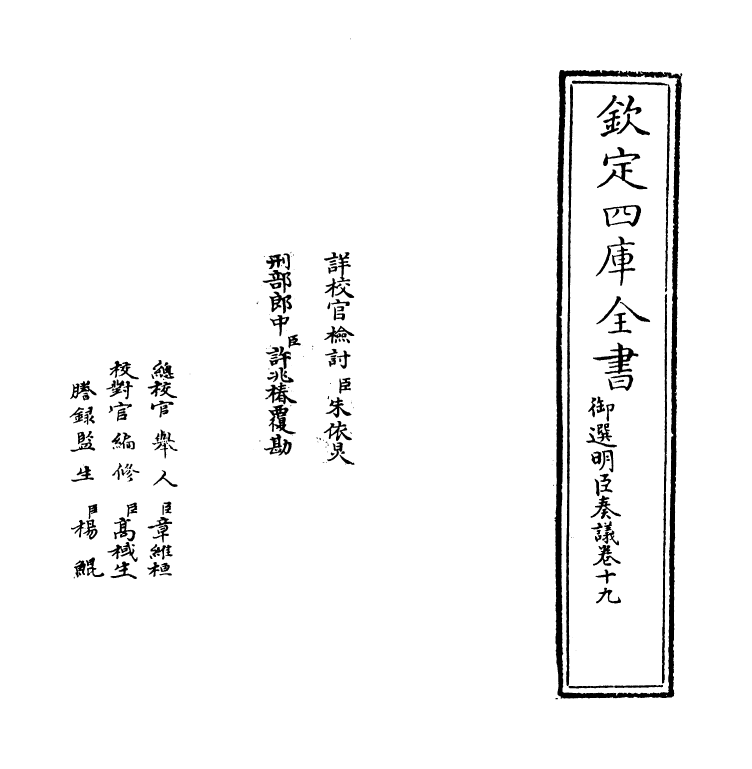 欽定四庫全書
御選明臣奏議卷十九
詳校官檢討臣朱依炅
刑部郎中臣許兆椿覆勘
總校官舉人臣章維桓
校對官編修臣高棫生
謄錄監生臣楊鯤